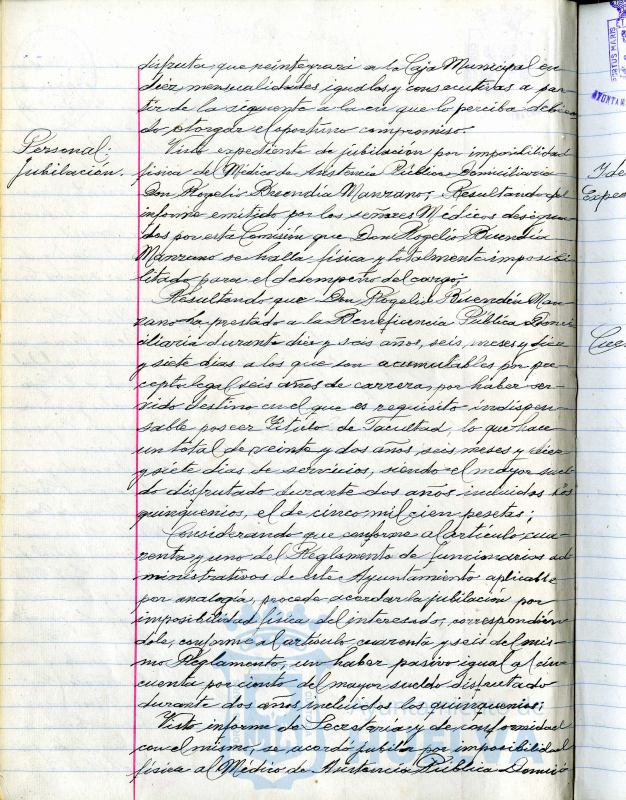 disfruta, que reintegrará a la Caja Municipal en
diez mensualidades iguales y consecutivas a par-
tir de la siguiente a la en que la perciba debien
do, otorgar el oportuno compromiso.
Personal:
Jubilación.
Visto expediente de jubilación por imposibilidad
física del Médico de Asistencia Pública Domiciliaria
Don Rogelio Buendía Manzano; Resultando del
informe emitido por los señores Médicos designa-
dos por esta Comisión que Don Rogelio Buendía
Manzano se halla física y totalmente imposibi-
litado para el desempeño del cargo;
Resultando que Don Rogelio Buendía Man-
zano ha prestado a la Beneficencia Pública Domi-
ciliaria durante diez y seis años, seis meses y diez
y siete dias a los que son acumulables por pre-
cepto legal seis años de carrera, por haber ser-
vido destino en el que es requisito indispen-
sable poseer Título de Facultad, lo que hace
un total de veinte y dos años, seis meses y diez
y siete dias de servicios, siendo el mayor suel-
do disfrutado durante dos años incluidos los
quinquenios, el de cinco mil cien pesetas;
Considerando que conforme al artículo cua-
renta y uno del Reglamento de funcionarios ad-
ministrativos de este Ayuntamiento aplicable
por analogía, procede acordar la jubilación por
imposibilidad física del interesado, correspondién-
dole, conforme al artículo cuarenta y seis del mis-
mo Reglamento, un haber pasivo igual al cin-
cuenta por ciento del mayor sueldo disfrutado
durante dos años incluidos los quinquenios;
Visto informe de Secretaría y de conformidad
con el mismo, se acordó jubilar por imposibilidad
física al Médico de Asistencia Pública Domici-
HUELVA